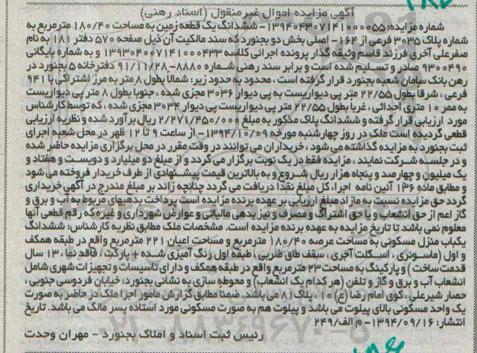 آگهی مزایده اموال غیر منقول (اسناد رهنی)
شماره مزایده: ۱۳۹۴۰۴۳۰۷۱۴۱۰۰۰۰۵۵- ششدانگ یک قطعه زمین به مساحت ۱۸۰/۴۰ مترمربع به
شماره پلاک ۳۰۳۵ فرعی از ۱۶۴- اصلی بخش دو بجنورد که سند مالکیت آن ذیل صفحه ۵۷۰ دفتر ۱۸۱ به نام
صفرعلی آخری فرزند قاسم وثیقه گذار پرونده اجرائی کلاسه ۱۳۹۳۰۴۰۰۷۱۴۱۰۰۰۴۳۳ و به شماره بایگانی
۹۳۰۰۴۹۰ صادر و تسلیم شده است و برابر سند رهنی شماره ۸۸۸۰-۹۱/۱۱/۲۸ دفترخانه ۵ بجنورد در
رهن بانک سامان شعبه بجنورد قرار گرفته است، محدود به حدود زیر: شمالا بطول ۸ متر به مرز اشتراکی با ۹۴۱
فرعی، شرقا بطول ۲۲/۵۵ متر پی دیواریست به پی دیوار ۳۰۳۶ مجزی شده، جنوبا بطول ۸ متر پی دیواریست
به ممر ۱۰ متری احداثی، غربا بطول ۲۲/۵۵ متر پی دیواریست به پی دیوار ۳۰۳۴ مجزی شده، که توسط کارشناس
مورد ارزیابی قرار گرفته و ششدانگ پلاک مذکور به مبلغ ۲/۲۷۱/۴۵۰/۰۰۰ ریال برآورد شده و نظریه ارزیابی
قطعی گردیده است ملک در روز چهارشنبه مورخه ۱۳۹۴/۱۰/۰۹- از ساعت ۹ تا ۱۲ ظهر در محل شعبه اجرای
ثبت بجنورد به مزایده گذاشته می شود، خریداران می توانند در وقت مقرر در محل برگزاری مزایده حاضر شده
و در جلسه شرکت نمایند، مزایده فقط در یک نوبت برگزار می گردد و از مبلغ دو میلیارد و دویست و هفتاد و
یک میلیون و چهارصد و پنجاه هزار ریال شروع و به بالاترین قیمت پیشنهادی از طرف خریدار فروخته می شود
و مطابق ماده ۱۳۶ آئین نامه اجرا، کل مبلغ نقدا دریافت می گردد چنانچه زائد بر مبلغ مندرج در آگهی خریداری
گردد حق مزایده نسبت به مازاد مبلغ ارزیابی بر عهده برنده مزایده است پرداخت بدهیهای مربوط به آب و برق و
گاز اعم از حق انشعاب و یا حق اشتراک و مصرف و نیز بدهی مالیاتی و عوارض شهرداری و غیره که رقم قطعی آنها
معلوم نمی باشد تا تاریخ مزایده به عهده برنده مزایده است. مشخصات ملک مطابق نظریه کارشناس: ششدانگ
یکباب منزل مسکونی به مساحت عرصه ۱۸۰/۴۰ مترمربع و مساحت اعیان ۲۲۱ مترمربع واقع در طبقه همکف
و اول (ماسونری، اسکلت آجری، سقف طاق ضربی، طبقه اول رنگ آمیزی شده + پارکت، فاقد نما، ۱۳ سال
قدمت ساخت) و پارکینگ به مساحت ۲۳ مترمربع واقع در طبقه همکف و دارای تاسیسات و تجهیزات شهری شامل
انشعاب آب و برق و گاز و تلفن (هر کدام یک انشعاب) و محوطه سازی به نشانی بجنورد: خیابان فردوسی جنوبی،
حصار شیرعلی، کوی امام رضا (ع) ۱۰، پلاک ۸۱ می باشد. ضمنا مطابق گزارش مامور اجرا ملک در حاضر به صورت
یک واحد مسکونی بالای پیلوت می باشد و پیلوت هم به صورت مسکونی مورد استفاده پسر مالک می باشد. تاریخ
انتشار: ۱۳۹۴/۰۹/۱۶- م الف/۲۴۹
رئیس ثبت اسناد و املاک بجنورد - مهران وحدت